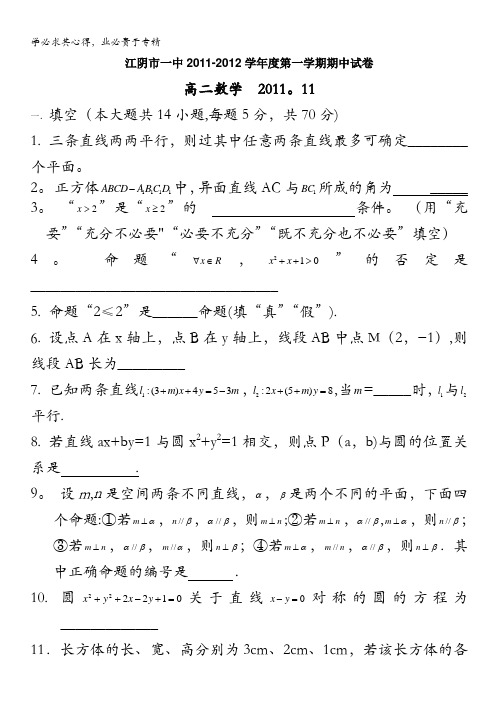 学必求其心得，业必贵于专精
江阴市一中2011-2012学年度第一学期期中试卷
高二数学 2011。11
一. 填空（本大题共14小题,每题5分，共70分)
1. 三条直线两两平行，则过其中任意两条直线最多可确定________
个平面。
2。正方体ABCD－A₁B₁C₁D₁中,异面直线AC与BC₁所成的角为 ______
3。 “x＞2”是“x≥2”的 条件。 （用“充
要”“充分不必要"“必要不充分”“既不充分也不必要”填空）
4 。 命题“ ∀x∈R ， x²+x+1>0 ”的否定是
________________________________
5. 命题“2≤2”是______命题(填“真”“假”).
6. 设点A在x轴上，点B在y轴上，线段AB中点M（2，−1）,则
线段AB长为_________
7. 已知两条直线l₁:(3+m)x+4y=5−3m，l₂:2x+(5+m)y=8,当m=_____时，l₁与l₂
平行.
8. 若直线ax+by=1与圆x²+y²=1相交，则点P（a，b)与圆的位置关
系是 .
9。 设m,n是空间两条不同直线，α，β是两个不同的平面，下面四
个命题:①若m⊥α，n//β，α//β，则m⊥n;②若m⊥n，α//β,m⊥α，则n//β；
③若m⊥n，α//β，m//α，则n⊥β；④若m⊥α，m//n，α//β，则n⊥β．其
中正确命题的编号是 ．
10. 圆x²+y²+2x−2y+1=0关于直线x−y=0对称的圆的方程为
_____________
11．长方体的长、宽、高分别为3cm、2cm、1cm，若该长方体的各